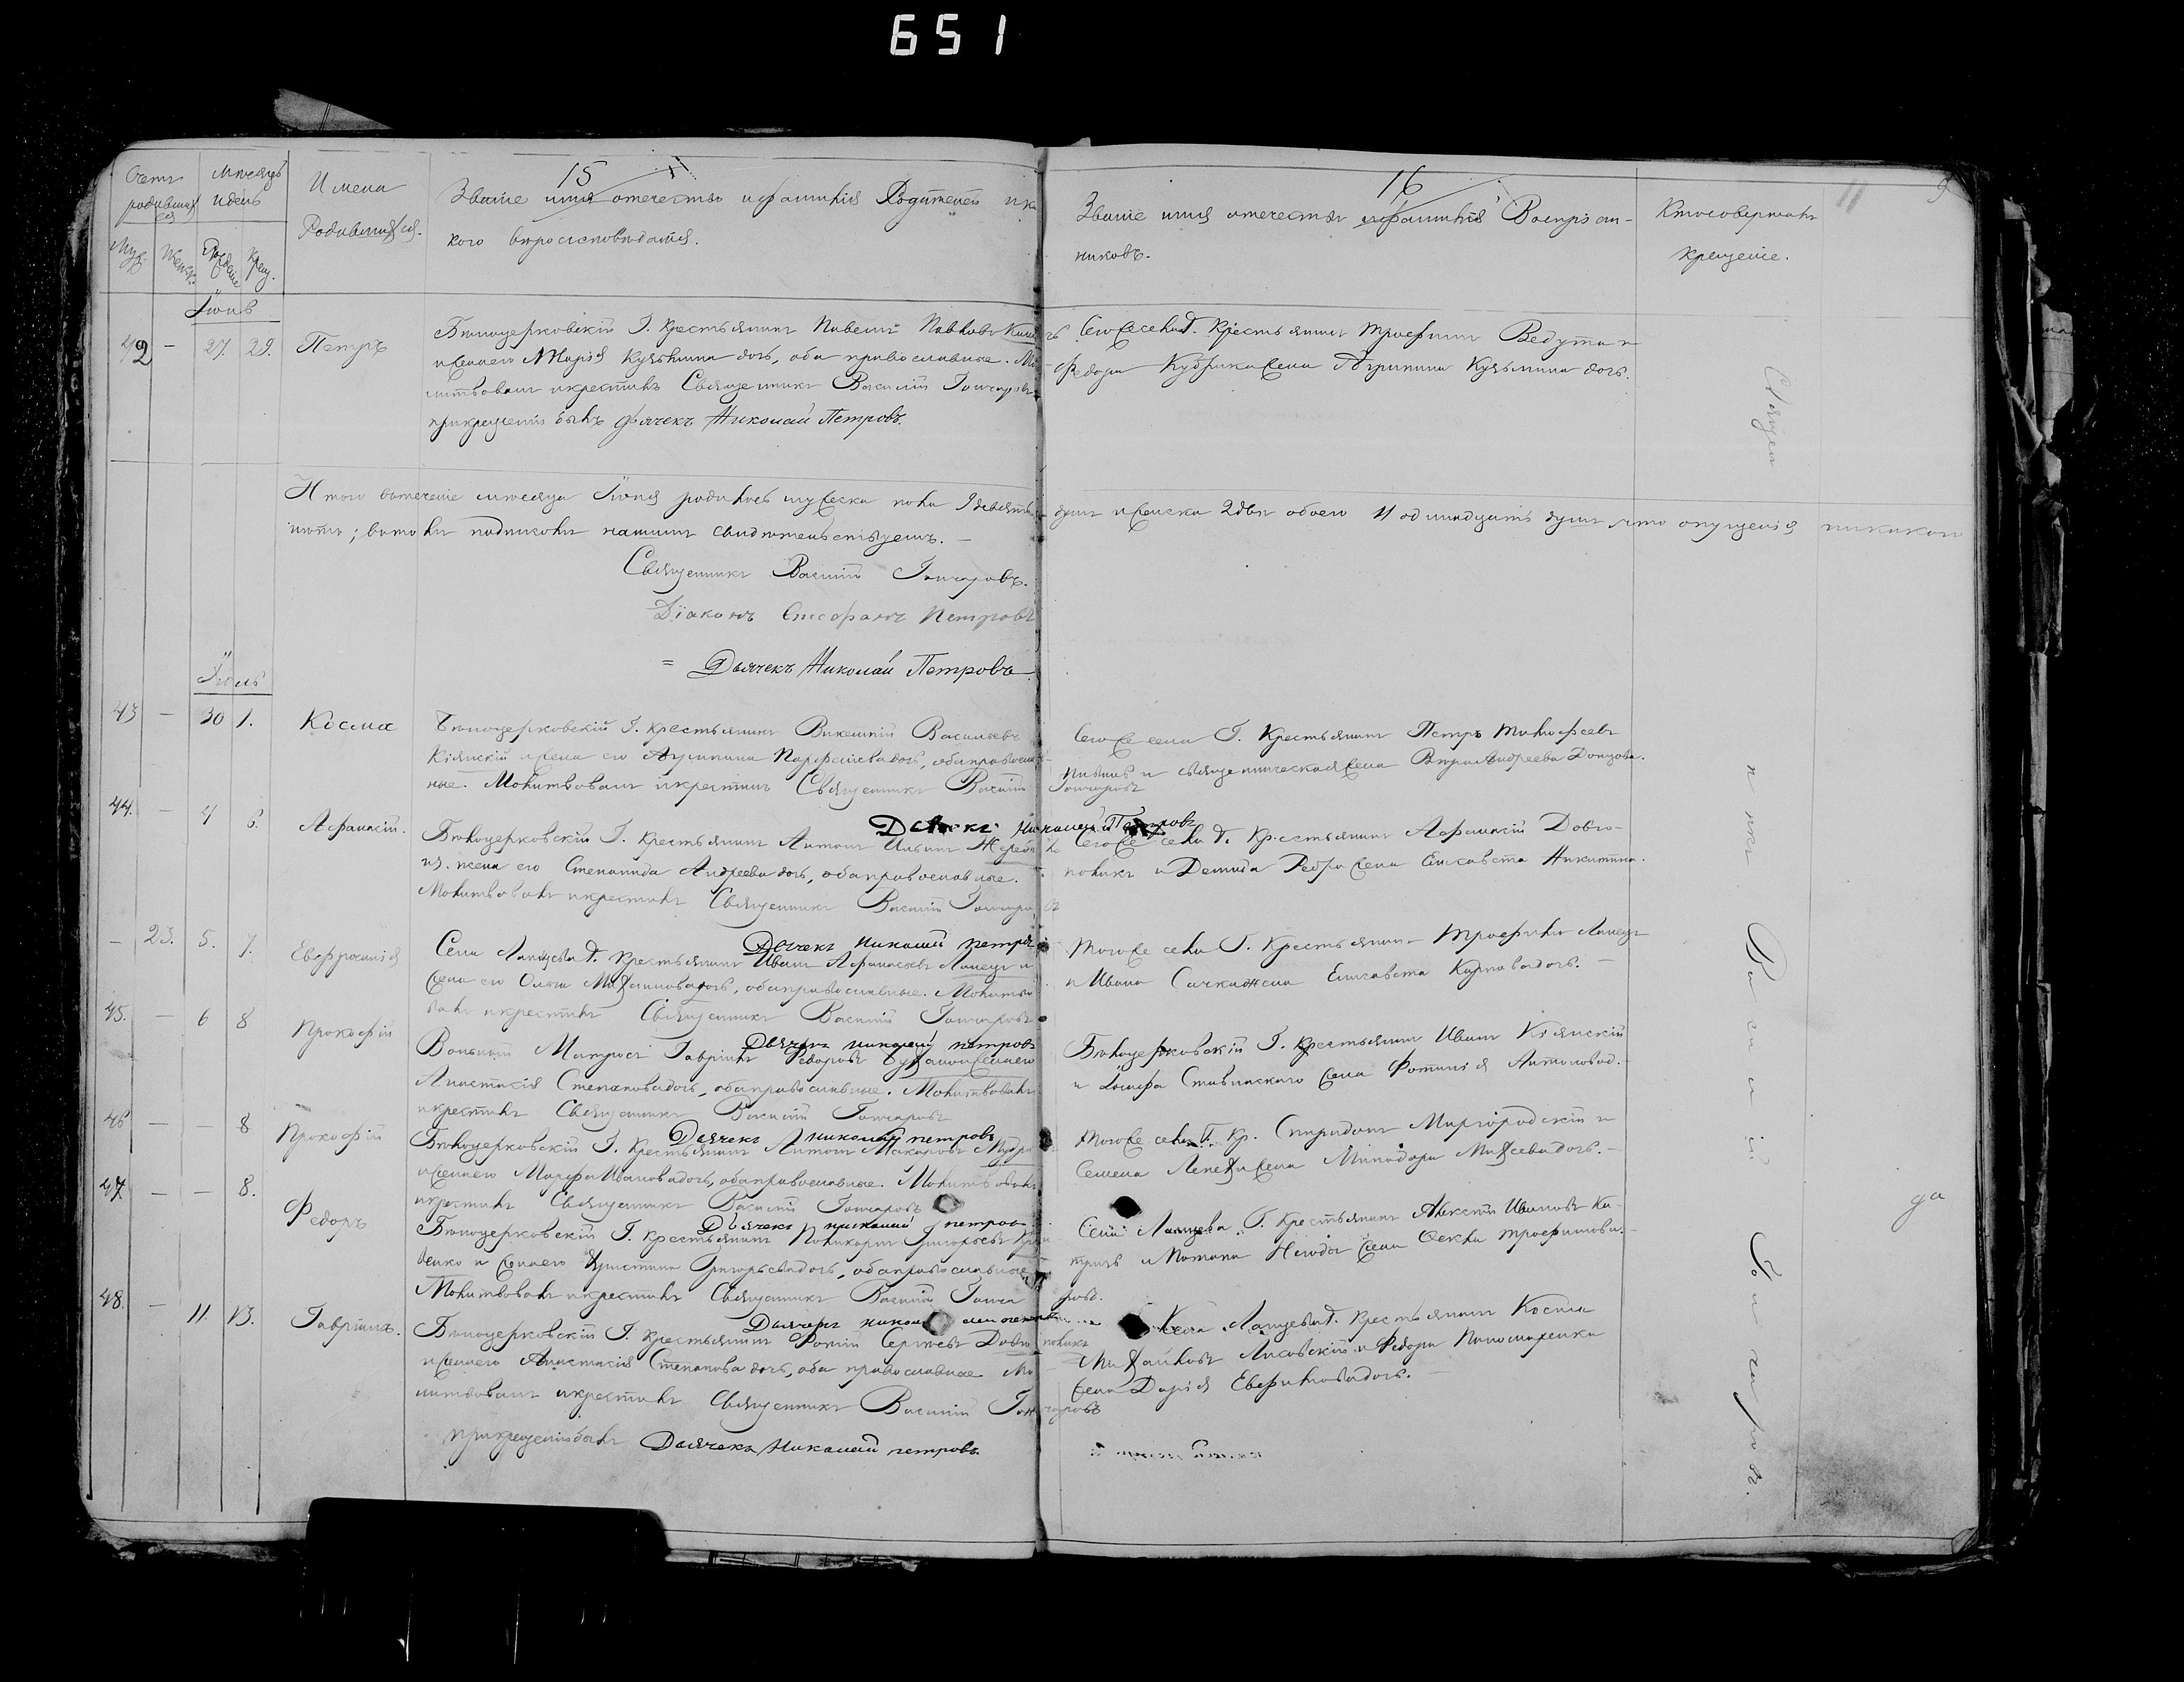 651
15
16
11
9
Счетъ родившихся
Мѣсяцъ и день
Имена Родившихся.
Званіе имя отечество и фамилія Родителей и ка
кого вѣроисповѣданія.
Званіе имя отечество и фамилія Воспріем-
никовъ.
Кто совершалъ
крещеніе.
Муж. Женс. Рожденіе Крещ.
Іюнь
42 — 27. 29. Петръ
Бѣлоцерковскій Г. Крестьянинъ Павелъ Павловъ
и жена его Марія Кузьмина дочь, оба православные. Мо
литвовалъ и крестилъ Священникъ Василій Гончаровъ
при крещеніи былъ Дьячекъ Николай Петровъ.
Того же села Г. Крестьянинъ Трофимъ Ведута и
Федора Кубрака жена Агрипина Кузьмина дочь.
Итого въ теченіе мѣсяца Іюня родилось мужеска пола 9 девять душъ и женска 2 двѣ обоего 11 одинадцать душъ что опущенія никакого
нѣтъ; въ томъ подписомъ нашимъ свидѣтельствуемъ. —
Священникъ Василій Гончаровъ.
Діаконъ Стефанъ Петровъ
= Дьячекъ Николай Петровъ.
Іюль
43 — 30 1. Косма
Бѣлоцерковскій Г. Крестьянинъ Викентій Васильевъ
Кіянскій жена его Агрипина Парфеніева дочь, оба православ
ные. Молитвовалъ и крестилъ Священникъ Василій Гончаровъ
Дьячекъ Николай Петровъ
Того же села Г. Крестьянинъ Петръ Тимофеевъ
и священническая жена Вѣра Андреева Донцова.
44. — 4 6. Афанасій.
Бѣлоцерковскій Г. Крестьянинъ Антонъ Ильинъ
из. жена его Степанида Андреева дочь, оба православные.
Молитвовалъ и крестилъ Священникъ Василій Гончаровъ
Дьячекъ Николай Петровъ
Того же села Г. Крестьянинъ Афанасій Довго-
полыкъ и Демида Ребра жена Елисавета Никитина.
— 23. 5. 7. Евфросинія
Села Лящева Г. Крестьянинъ Иванъ Афанасьевъ Ляпецъ и
жена его Ольга Михаилова дочь, оба православные. Молитво
валъ и крестилъ Священникъ Василій Гончаровъ
Дьячекъ Николай Петровъ
Того же села Г. Крестьянинъ Трофимъ Ляпецъ
и Ивана Сачка жена Елисавета Карпова дочь. —
45. — 6 8 Прокофій
Вольный Матросъ Гавріилъ Федоровъ и жена его
Анастасія Степанова дочь, оба православные. Молитвовалъ
и крестилъ Священникъ Василій Гончаровъ
Дьячекъ Николай Петровъ
Бѣлоцерковскій Г. Крестьянинъ Иванъ Кіянскій
и Іосифа Ставинскаго жена Фотинія Антонова д.
46 — — 8 Прокофій
Бѣлоцерковскій Г. Крестьянинъ Антонъ Макаровъ
и жена его Марфа Иванова дочь, оба православные. Молитвовалъ
и крестилъ Священникъ Василій Гончаровъ
Дьячекъ Николай Петровъ
Того же села Г. Кр. Спиридонъ Миргородскій и
Семена Лепехи жена Минодора Михеева дочь. —
47 — — 8. Федоръ
Бѣлоцерковскій Г. Крестьянинъ Поликарпъ Григорьевъ
денко и жена его Христина Григорьева дочь, оба православные
Молитвовалъ и крестилъ Священникъ Василій Гончаровъ.
Села Лящева Г. Крестьянинъ Алексѣй Ивановъ Ка-
и Матвия Негоды жена Фекла Трофимова.
48. — 11. 13. Гавріилъ.
Бѣлоцерковскій Г. Крестьянинъ Фотій Сергѣевъ Довгополыкъ
и жена его Анастасія Степанова дочь, оба православные Мо
литвовалъ и крестилъ Священникъ Василій Гончаровъ
при крещеніи былъ Дьячекъ Николай Петровъ
Села Лящева Г. Крестьянинъ Косма
Михайловъ Лисовскій и Федора Пономаренка
жена Дарія Евфимова дочь. —
Священникъ Василій Гончаровъ.